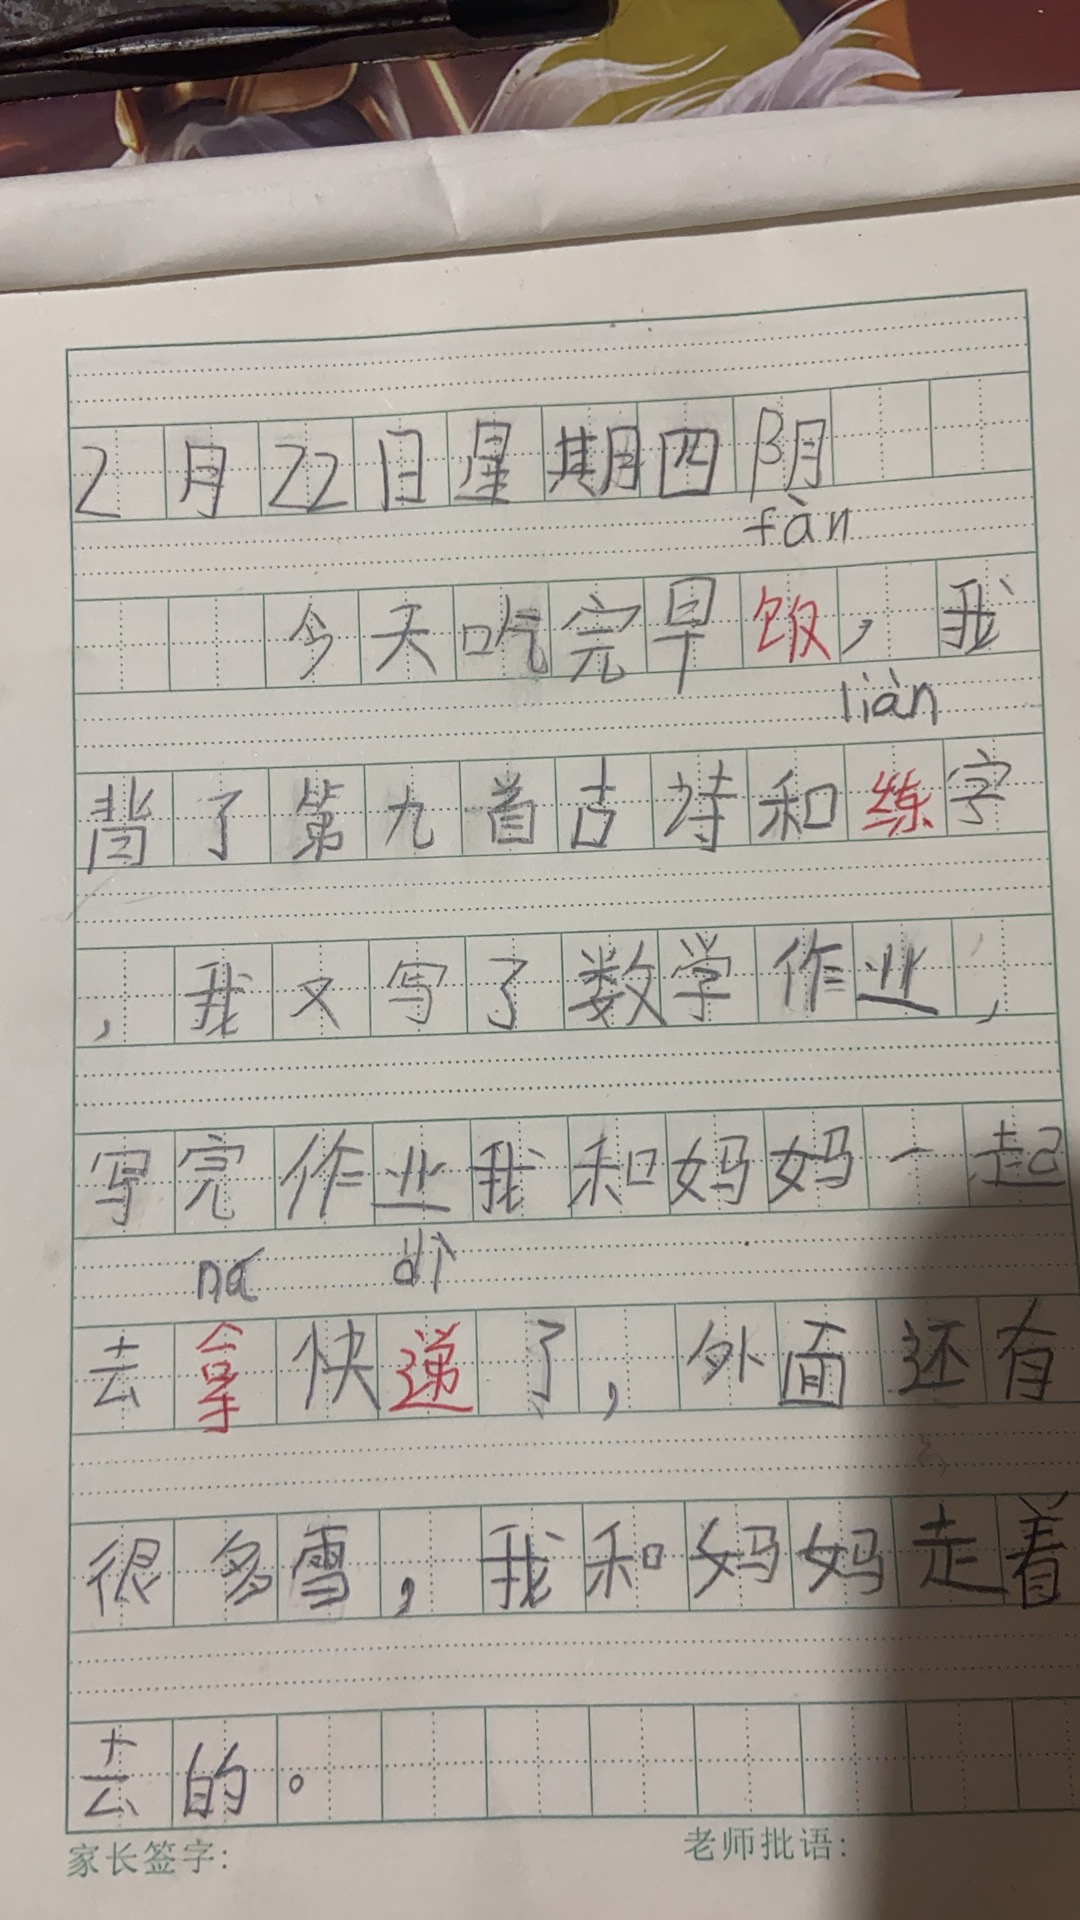 2月22日星期四阴
fàn
今天吃完早饭，我
liàn
背了第九首古诗和练字
，我又写了数学作业，
写完作业我和妈妈一起
ná dì
去拿快递了，外面还有
很多雪，我和妈妈走着
去的。
家长签字: 老师批语: